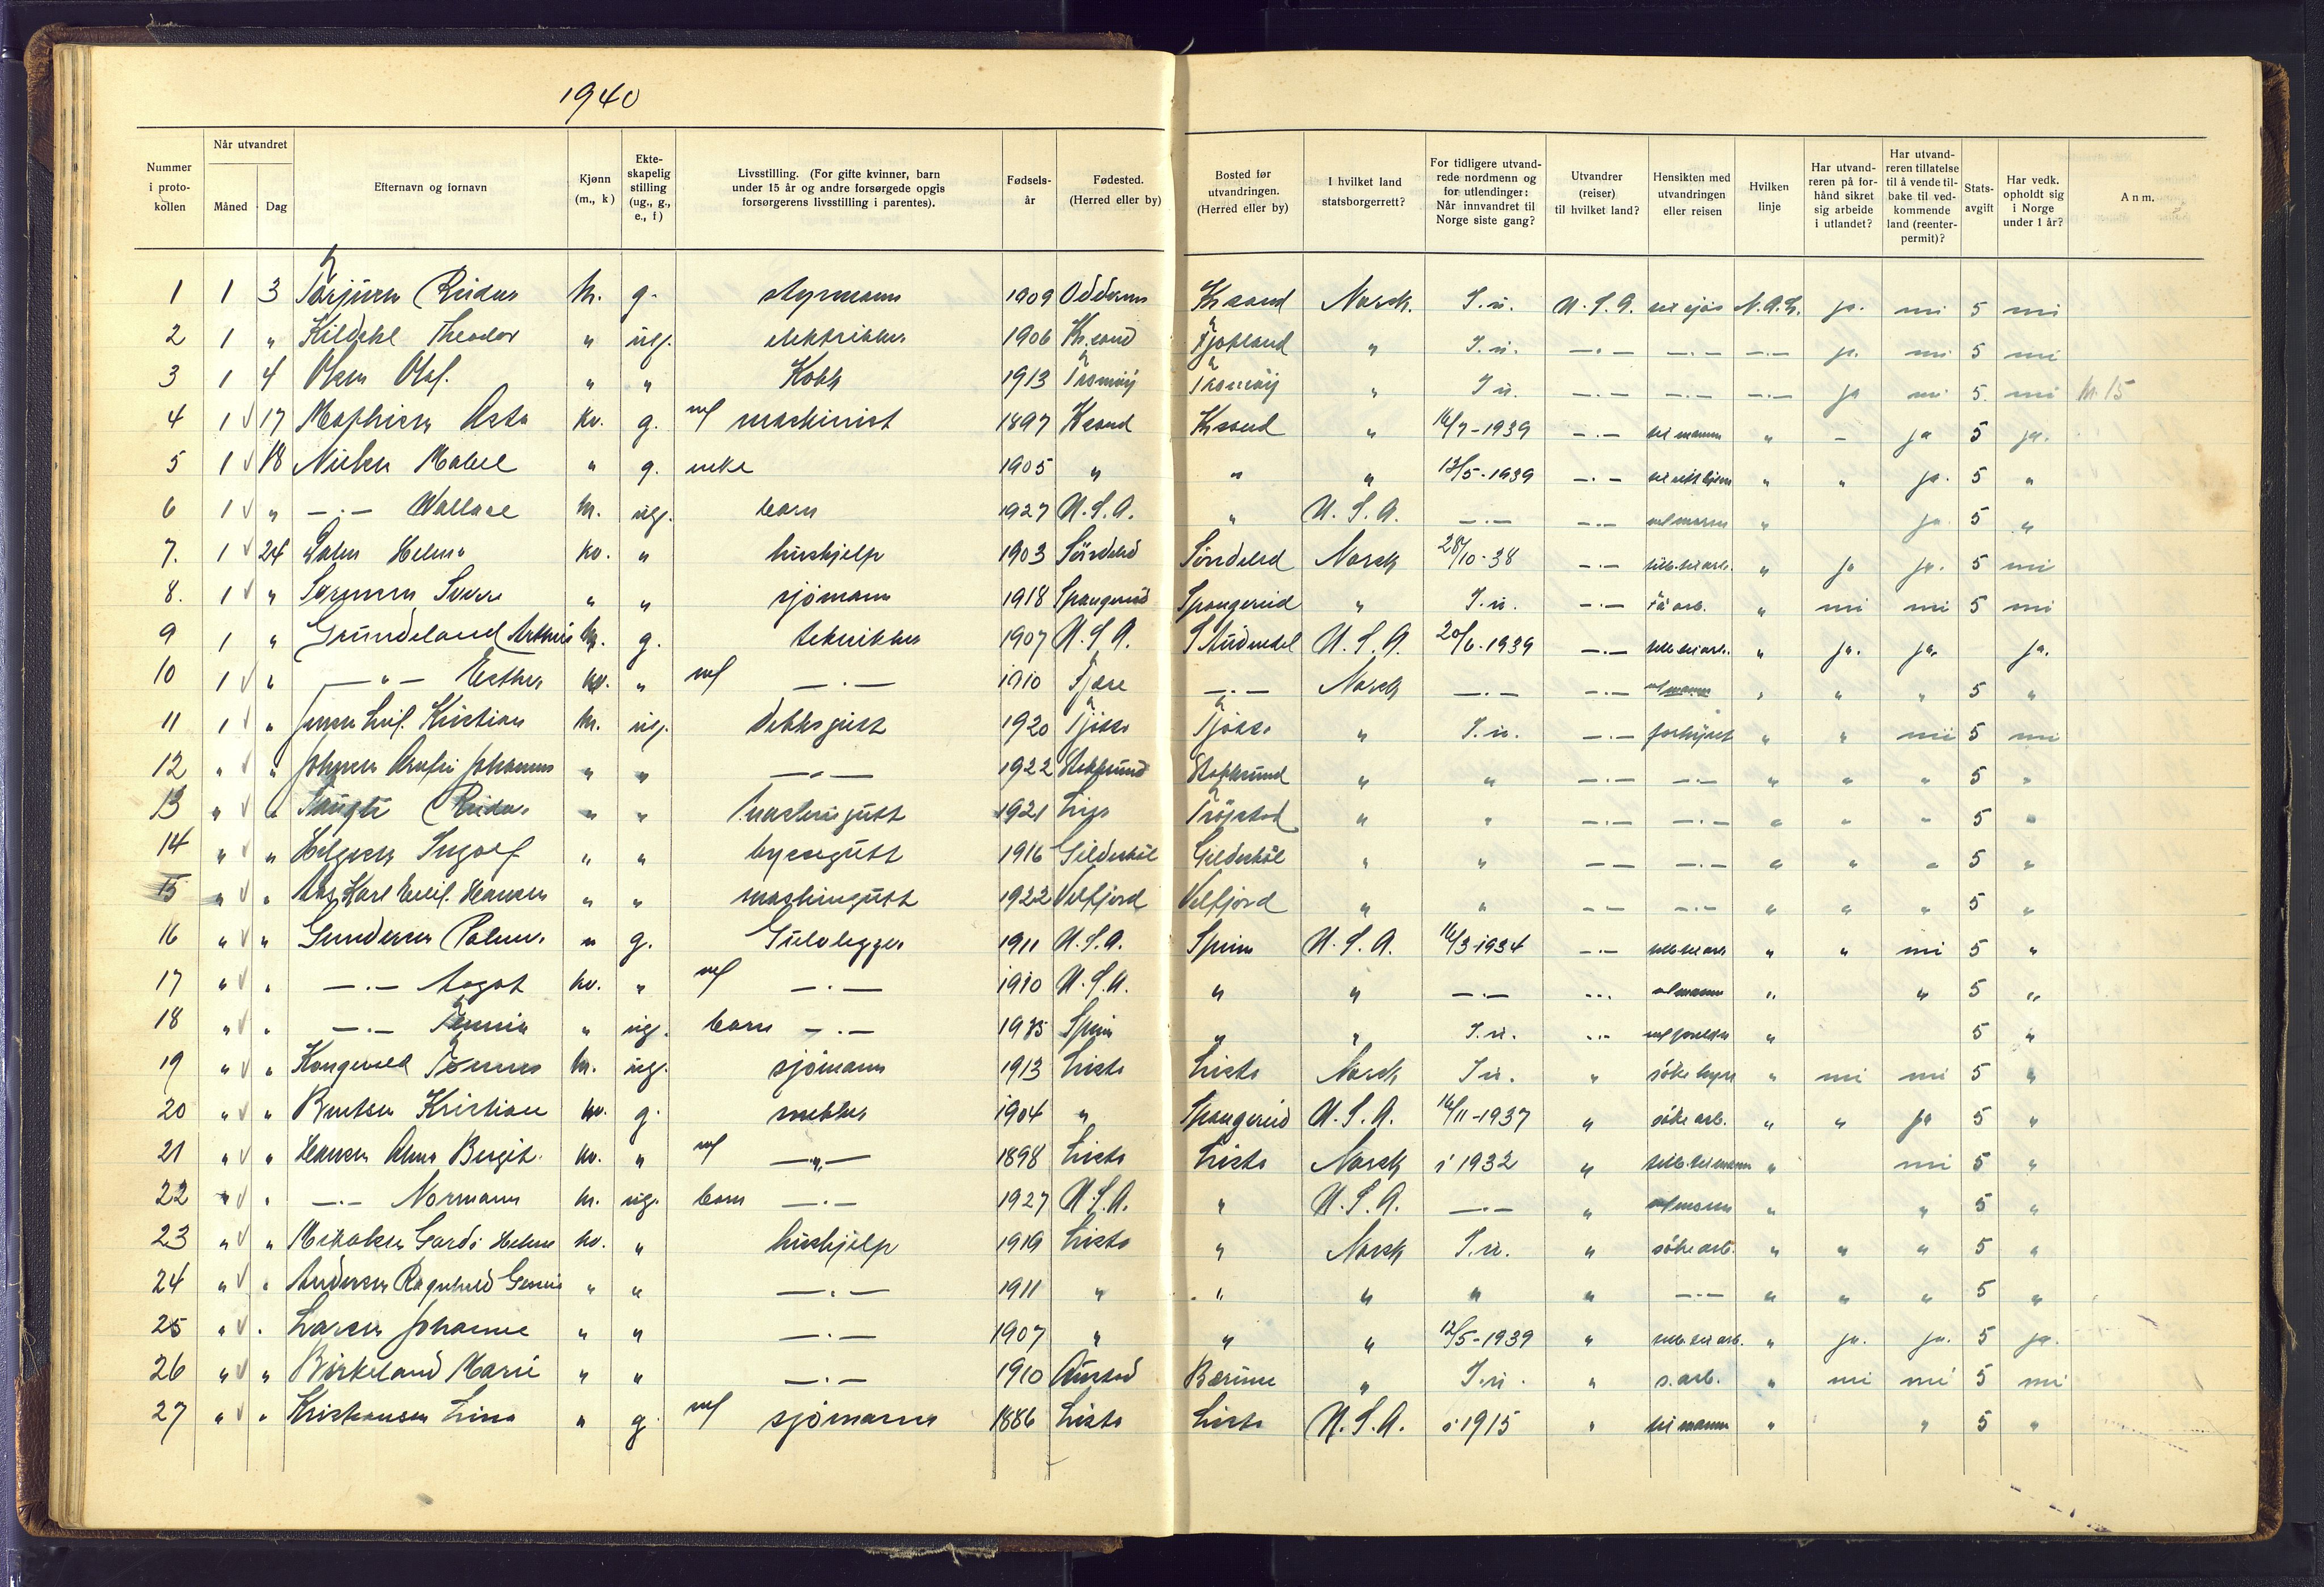 1940
Nummer i protokollen | Når utvandret | Måned | Dag | Efternavn og fornavn | Kjønn (m., k) | Ekteskapelig stilling (ug., g., e., f) | Livsstilling. (For gifte kvinner, barn under 15 år og andre forsørgede opgis forsørgerens livsstilling i parentes). | Fødselsår | Fødested. (Herred eller by) | Bosted før utvandringen. (Herred eller by) | I hvilket land statsborgerrett? | For tidligere utvandrede nordmenn og for utlendinger: Når innvandret til Norge siste gang? | Utvandrer (reiser) til hvilket land? | Hensikten med utvandringen eller reisen | Hvilken linje | Har utvandreren på forhånd sikret sig arbeide i utlandet? | Har utvandreren tillatelse til å vende tilbake til vedkommende land (reenterpermit)? | Statsavgift | Har vedk. opholdt sig i Norge under 1 år? | Anm.
1 | 1 | 3 | Reidar | M. | g. | styrmann | 1909 | Oddernes | Kr.sand | Norsk. | I.u. | U.S.A. | til sjøs | N.A.L. | ja. | nei | 5 | nei
2 | 1 | " | Kildahl Theodor | " | ug. | elektriker | 1906 | Kr.sand | | " | I.u. | —.— | —.— | —.— | ja. | nei | 5 | nei
3 | 1 | 4 | Olsen Olaf. | " | " | Kokk | 1913 | Tromøy | Tromøy | " | I u. | —.— | —.— | —.— | ja | nei | 5. | nei
4 | 1 | 17 | Asta | Kv. | g. | m/ maskinist | 1897 | Kr.sand | Kr.sand | " | 16/7-1939 | —.— | til mann | " | - | ja | 5 | ja.
5 | 1 | 18 | Nielsen Mabel | " | g. | enke | 1905 | " | " | " | 12/5-1939 | —.— | | " | " | ja. | 5 | "
6 | 1 | " | —.— Wallace | M. | ug. | barn | 1927 | U.S.A. | " | U.S.A. | —.— | —.— | | " | | ja. | 5 | "
7. | 1 | 24 | Helma | Kv. | " | hushjelp | 1903 | Søndeled | Søndeled | Norsk | 28/10-38 | —.— | tilb. til arb. | " | ja | ja. | 5 | nei
8. | 1 | " | Sverre | " | " | sjømann | 1918 | Spangereid | Spangereid | " | I.u. | —.— | få arb. | " | nei | nei | 5 | nei
9 | 1 | " | Grundeland Arthur | M. | g. | tekniker | 1907 | U.S.A. | S. Audnedal | U.S.A. | 20/6-1939 | —.— | tilb. til arb. | " | ja. | ja. | | ja.
10 | 1 | " | —"— Esther | Kv. | " | m/ —.— | 1910 | Fjære | —.— | Norsk | —.— | —.— | m/mann | " | " | " | 5 | "
11 | 1 | " | Jensen Leif. Kristian | M. | ug. | dekksgutt | 1920 | Tjöme | Tjöme | " | I.u. | —.— | forhyret | " | " | nei | 5 | nei
12 | " | " | Johnsen Johannes | " | " | —"— | 1922 | Stokksund | Stokksund | " | " | —.— | —.— | " | " | " | 5 | "
13 | " | " | Reidar | " | " | maskingutt | 1921 | | Trøgstad | " | " | —.— | —.— | " | " | " | 5 | "
14 | " | " | Helgesen Ingolf | " | " | byssegutt | 1916 | Gildeskål | Gildeskål | " | " | —— | —.— | " | " | " | 5 | "
15 | " | " | Aas Karl Hansen | " | " | maskingutt | 1922 | Velfjord | Velfjord | " | " | —— | —.— | " | " | " | 5 | "
16 | " | " | Gundersen Palmer | " | g. | Gulvlegger | 1911 | U.S.A. | Spind | U.S.A. | 16/3-1934 | —.— | tilb. til arb | " | " | nei | 5 | "
17 | " | " | —.— Aagot | kv. | " | m/ —.— | 1910 | U.S.A. | " | " | —.— | ... | m/mann | " | | " | 5 | "
18 | " | " | —.— | " | ug. | barn —.— | 1935 | Spind | " | " | I.u. | ... | m/foreldre | " | | | 5 | "
19 | " | " | Kongevold | M. | ug. | sjømann | 1913 | Lista | Lista | Norsk | I u. | " | søke hyre | " | nei | nei | 5 | "
20 | " | " | Berntsen Kristian | | g. | snekker | 1904 | " | Spangereid | U.S.A. | 16/11-1937 | " | søke arb. | " | " | ja | 5 | "
21 | " | " | Hansen Alma Bergit. | kv. | " | m/ —"— | 1898 | Lista | Lista | Norsk | i 1932 | " | tilb. til mann | " | | nei | 5 | "
22 | " | " | —.— Normann | M. | ug. | barn —.— | 1927 | U.S.A. | " | U.S.A. | —.— | " | | " | | " | 5 | "
23 | " | " | Mikalsen Helene | kv. | " | hushjelp | 1919 | Lista | " | Norsk | I.u. | " | søke arb. | " | " | " | 5 | "
24 | " | " | Andersen Ragnhild | " | " | —.— | 1911 | " | " | " | " | " | —.— | " | " | " | 5 | "
25 | " | " | Larsen Johanne | " | " | —.— | 1907 | " | " | " | 12/5-1939 | " | tilb. til arb. | " | ja. | ja. | 5 | ja.
26 | " | " | Birkeland Marie | " | " | —.— | 1910 | Austad | Bærum | " | I.u. | " | s. arb. | " | nei | nei | 5 | nei
27 | " | " | Kristiansen Lina | " | g. | m/ sjømann | 1886 | Lista | Lista | U.S.A. | i 1915 | " | til mann | " | | " | 5 | "